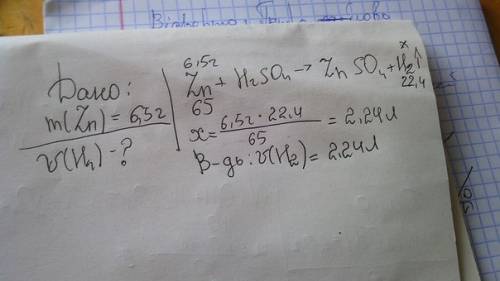 Дано:
m(Zn) = 6,5г
V(H₂) - ?
6,5г x
Zn + H₂SO₄ → ZnSO₄ + H₂↑
65 22,4
x = 6,5г · 22,4 / 65 = 2,24л
В-дь: V(H₂) = 2,24л